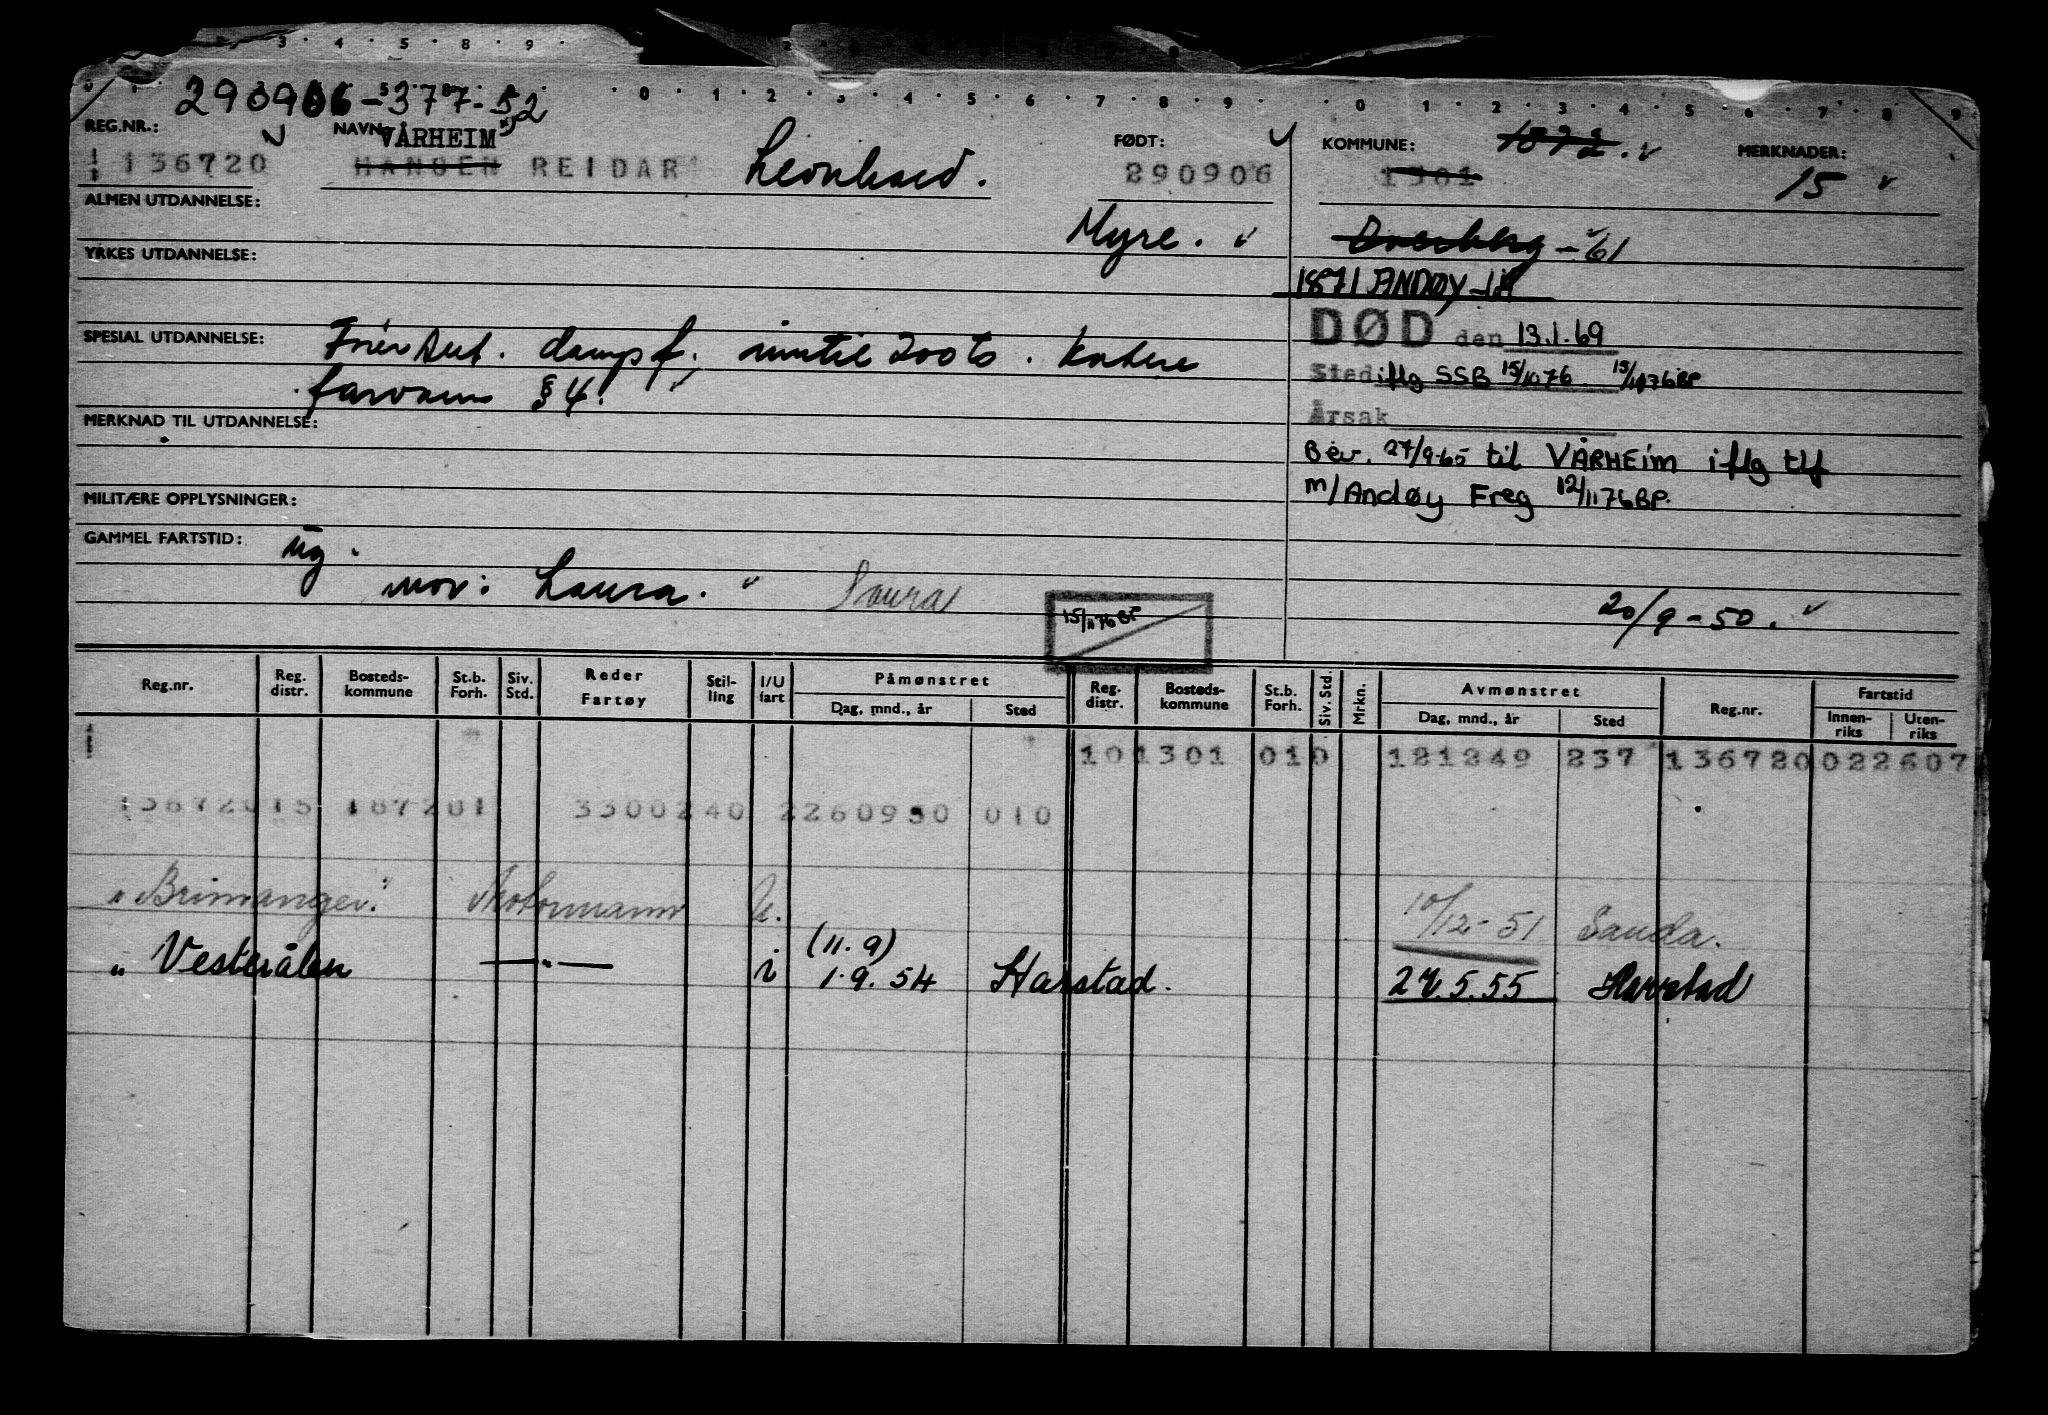 3 4 5 8 9
290906-53787-52
0 1 2 3 4 5 6 7 8 9 0 1 2 3 4 5 6 7 8 9
REG.NR.: NAVN: VÅRHEIM FØDT: KOMMUNE: 1872. MERKNADER:
136720 HANSEN REIDAR Leonhard. 290906 1301 15
ALMEN UTDANNELSE:
Myre. -61
YRKES UTDANNELSE:
1871 ANDØY -18
SPESIAL UTDANNELSE: dampf. inntil 200 to.
DØD den 13.1.69
farvann § 4.
Sted iflg SSB 15/10 76. 15/11 76 BP
MERKNAD TIL UTDANNELSE:
Årsak
Bev. 27/9-65 til VÅRHEIM iflg tlf
MILITÆRE OPPLYSNINGER:
m/Andøy Freg 12/11 76 BP.
GAMMEL FARTSTID: ug.
mor: Laura. Laura
15/11 76 BP
20/9-50.
Reg.nr. Reg. distr. Bosteds-kommune St.b. Forh. Siv. Std. Reder Fartøy Stil-ling I/U fart Påmønstret Dag, mnd., år Sted Reg. distr. Bosteds-kommune St.b. Forh. Siv. Std. Mrkn. Avmønstret Dag, mnd., år Sted Reg.nr. Fartstid Innen-riks Uten-riks
10 1301 010 121249 237 136720 022607
13672015 187201 3300240 2260950 010
"Brimanger" Motormann U. 10/12-51 Sauda.
" Vesterålen —"— i (11.9) 1.9.54 Harstad. 27.5.55 Harstad